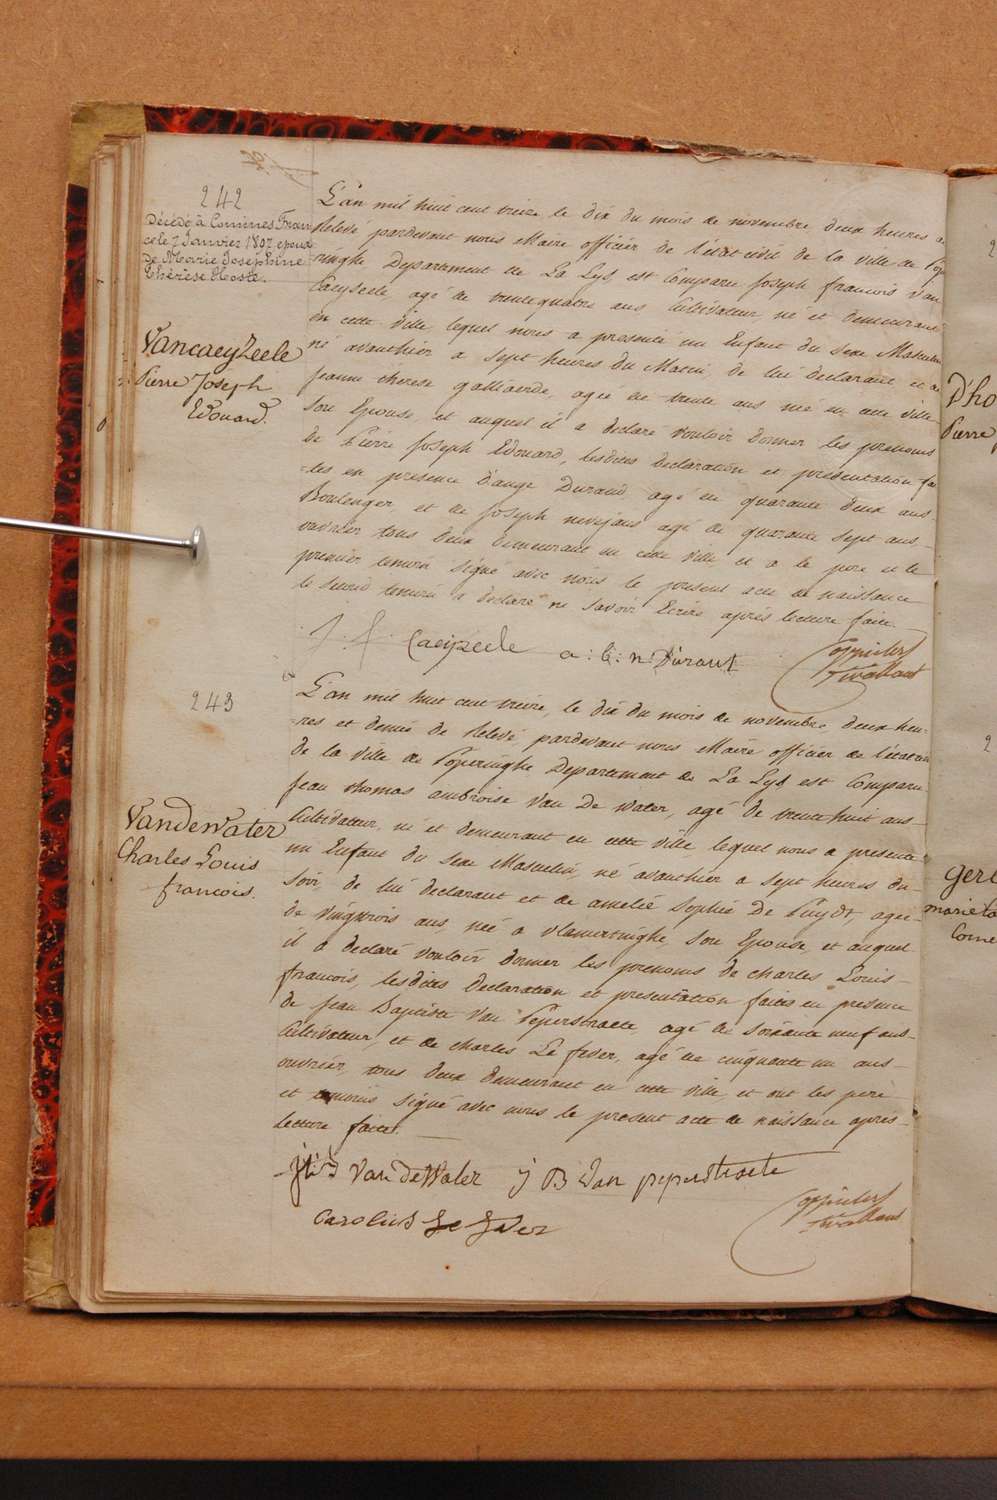 242
Décédé à Comines Fran
ce le 7 Janvier 1892 epoux
de Marie Josephine
Thérèse Hoste.
Vancaeyzeele
Pierre Joseph
Edouard.
L'an mil huit cent treize, le dix du mois de novembre deux heures de
Relevé pardevant nous Maire officier de l'état civil de la ville de Pope
ringhe Departement de La Lys, est Comparu Joseph francois Van
Caeyseele, agé de trente quatre ans Cultivateur né et demeurant
en cette ville, lequel nous a presenté un Enfant du Sexe Masculin
né avanthier a sept heures du Matin, de lui declarant et de
jeanne therese galliaerde, agée de trente ans née en cette ville
Son Epouse, et auquel il a declaré vouloir donner les prenoms
de Pierre Joseph Edouard, lesdites declaration et presentation fai
=tes en presence D'ange Durand agé de quarante deux ans
Boulenger, et de Joseph nevejans agé de quarante sept ans,
ouvrier tous deux demeurant en cette ville et a le pere et le
premier temoin signé avec nous le present acte de naissance
le second temoin a declaré ne savoir Ecrire après lecture faite.
J. f. Caeyzeele a : b : n Durant
243
Vandewater
Charles Louis
francois.
L'an mil huit cent treize, le dix du mois de novembre deux heu=
=res et demie de Relevé, pardevant nous Maire officier de l'état civil
de la ville de Poperinghe Departement de La Lys est Comparu
Jean thomas ambroise Van De Water, agé de trente huit ans
Cultivateur, né et demeurant en cette ville, lequel nous a presenté
un Enfant du Sexe Masculin, né avanthier a sept heures du
Soir, de lui declarant et de amelie Sophie De Puydt, agée
de vingttrois ans, née a Vlamertinghe, Son Epouse, et auquel
il a declaré vouloir donner les prenoms de Charles Louis
francois, lesdites Declaration et presentation faites en presence
de Jean Baptiste Van Peperstraete agé de soixante neuf ans
Cultivateur, et de Charles Le fever, agé de cinquante un ans
ouvrier, tous deux demeurant en cette ville, et ont les pere
et temoins signé avec nous le present acte de naissance après
lecture faite.
Van DeWater J B Van peperstraete
Carolus Le fever
D'ho
Pierre
2
Gerl
marie
Corne